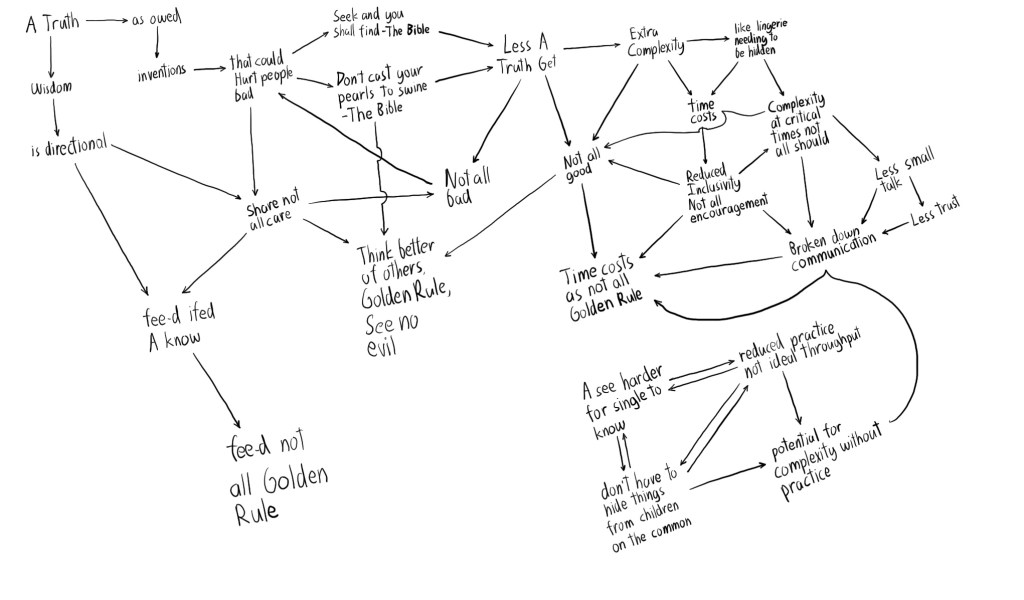 A Truth
as owed
Seek and you
Shall find-The Bible
Less A
Truth Get
Extra
Complexity
like lingerie
needing to
be hidden
Wisdom
inventions
that could
Hurt people
bad
Don't cast your
pearls to swine
-The Bible
time
costs
Complexity
at critical
times not
all should
is directional
Share not
all care
Not all
bad
Not all
good
Reduced
Inclusivity
Not all
encouragement
Less small
talk
Less trust
Think better
of others,
Golden Rule,
See no
evil
Time costs
as not all
Golden Rule
Broken down
communication
fee-d ifed
A know
fee-d not
all Golden
Rule
A see harder
for single to
know
reduced practice
not ideal throughput
don't have to
hide things
from children
on the common
potential for
complexity without
practice